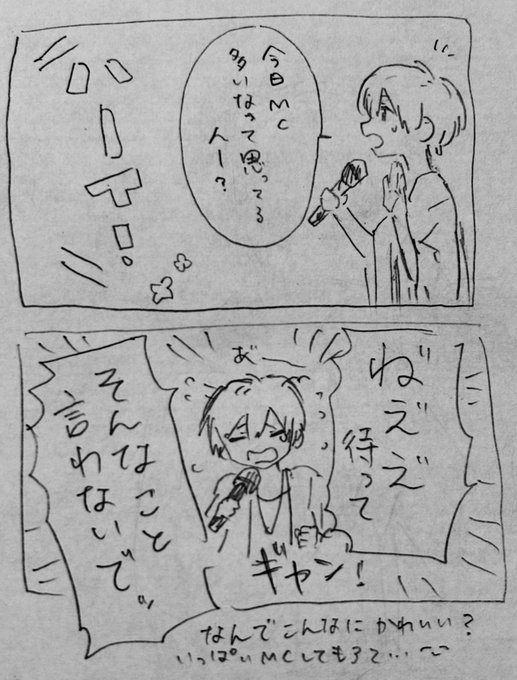 今日MC
多いなって思ってる
人ー?
ハーイ!
ね゛え゛え゛
待って
お゛ー
そんなこと
言わないで
ギャン!
なんでこんなにかわいい?
いっぱいMCしてもろて…